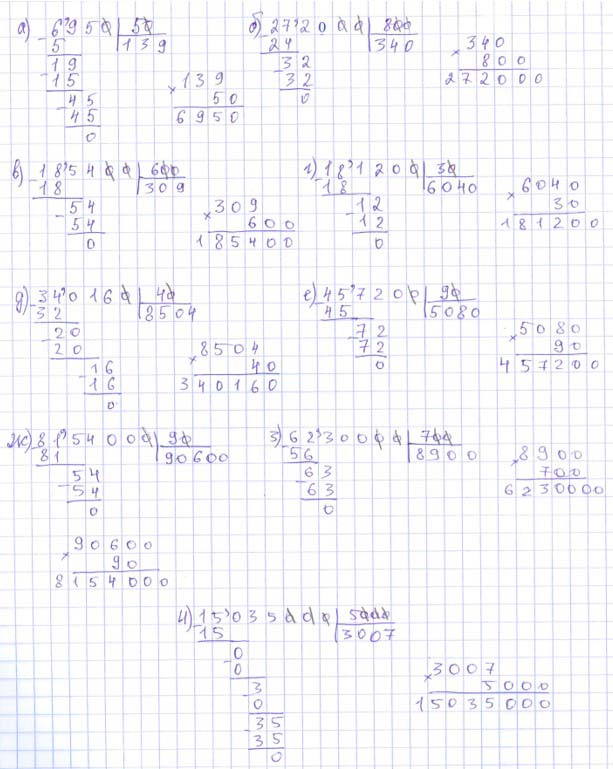 а) 6950 50
5 139
19
15 139
45 50
45 6950
0
б) 272000 800
24 340
32 340
32 800
0 272000
в) 185400 600
18 309
54 309
54 600
0 185400
г) 181200 30
18 6040
12 6040
12 30
0 181200
д) 340160 40
32 8504
20
20 8504
16 40
16 340160
0
е) 457200 90
45 5080
72 5080
72 90
0 457200
ж) 8154000 90
81 90600
54
54
0
90600
90
8154000
з) 6230000 700
56 8900
63 8900
63 700
0 6230000
и) 15035000 5000
15 3007
0
0
3 3007
0 5000
35 15035000
35
0